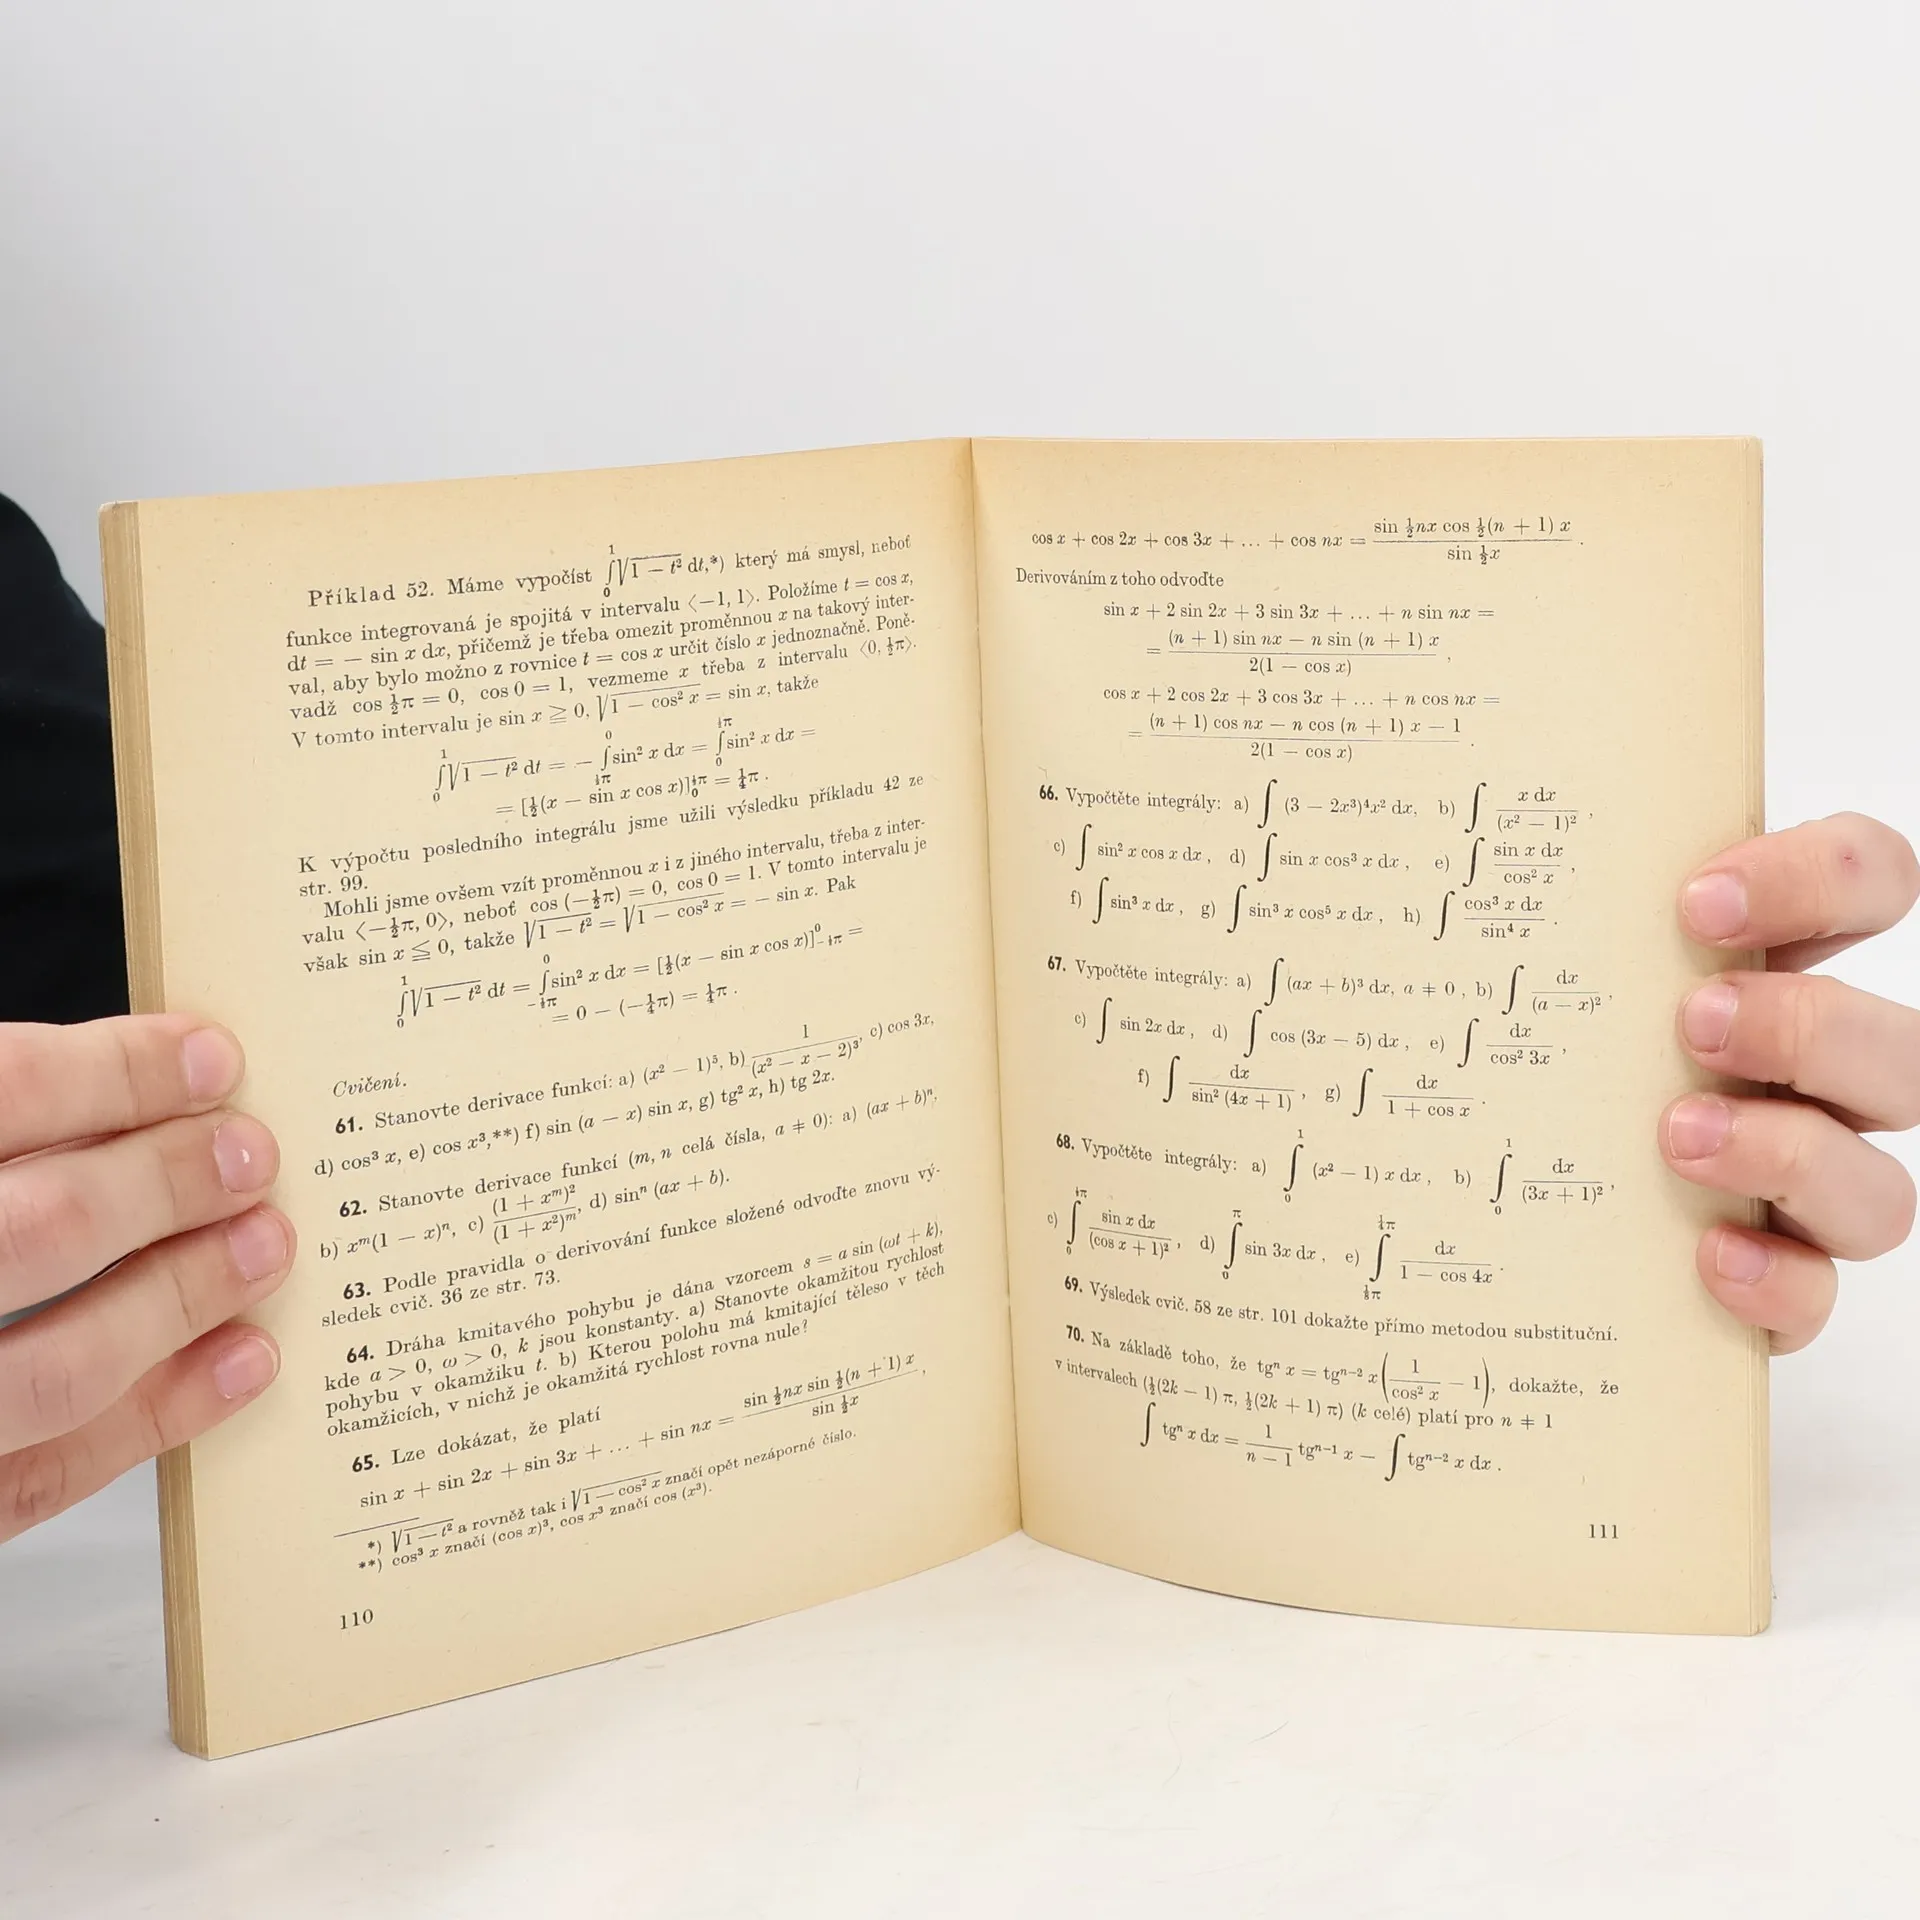 Příklad 52. Máme vypočíst ∫₀¹ √(1 − t²) dt,*) který má smysl, neboť
funkce integrovaná je spojitá v intervalu ⟨−1, 1⟩. Položíme t = cos x,
dt = − sin x dx, přičemž je třeba omezit proměnnou x na takový inter-
val, aby bylo možno z rovnice t = cos x určit číslo x jednoznačně. Poně-
vadž cos ½π = 0, cos 0 = 1, vezmeme x třeba z intervalu ⟨0, ½π⟩.
V tomto intervalu je sin x ≧ 0, √(1 − cos² x) = sin x, takže
∫₀¹ √(1 − t²) dt = − ∫_{½π}^{0} sin² x dx = ∫_{0}^{½π} sin² x dx =
= [½(x − sin x cos x)]_{0}^{½π} = ¼π .
K výpočtu posledního integrálu jsme užili výsledku příkladu 42 ze
str. 99.
Mohli jsme ovšem vzít proměnnou x i z jiného intervalu, třeba z inter-
valu ⟨−½π, 0⟩, neboť cos (−½π) = 0, cos 0 = 1. V tomto intervalu je
však sin x ≦ 0, takže √(1 − t²) = √(1 − cos² x) = − sin x. Pak
∫₀¹ √(1 − t²) dt = ∫_{−½π}^{0} sin² x dx = [½(x − sin x cos x)]_{−½π}^{0} =
= 0 − (−¼π) = ¼π .
Cvičení.
61. Stanovte derivace funkcí: a) (x² − 1)⁵, b) 1/(x² − x − 2)³, c) cos 3x,
d) cos³ x, e) cos x³,**) f) sin (a − x) sin x, g) tg² x, h) tg 2x.
62. Stanovte derivace funkcí (m, n celá čísla, a ≠ 0): a) (ax + b)ⁿ,
b) xᵐ(1 − x)ⁿ, c) (1 + xᵐ)²/(1 + x²)ᵐ, d) sinⁿ (ax + b).
63. Podle pravidla o derivování funkce složené odvoďte znovu vý-
sledek cvič. 36 ze str. 73.
64. Dráha kmitavého pohybu je dána vzorcem s = a sin (ωt + k),
kde a > 0, ω > 0, k jsou konstanty. a) Stanovte okamžitou rychlost
pohybu v okamžiku t. b) Kterou polohu má kmitající těleso v těch
okamžicích, v nichž je okamžitá rychlost rovna nule?
65. Lze dokázat, že platí
sin x + sin 2x + sin 3x + ... + sin nx = sin ½nx sin ½(n + 1) x / sin ½x ,
*) √(1 − t²) a rovněž tak i √(1 − cos² x) značí opět nezáporné číslo.
**) cos³ x značí (cos x)³, cos x³ značí cos (x³).
110
cos x + cos 2x + cos 3x + ... + cos nx = sin ½nx cos ½(n + 1) x / sin ½x .
Derivováním z toho odvoďte
sin x + 2 sin 2x + 3 sin 3x + ... + n sin nx =
= (n + 1) sin nx − n sin (n + 1) x / 2(1 − cos x) ,
cos x + 2 cos 2x + 3 cos 3x + ... + n cos nx =
= (n + 1) cos nx − n cos (n + 1) x − 1 / 2(1 − cos x) .
66. Vypočtěte integrály: a) ∫ (3 − 2x³)⁴x² dx, b) ∫ x dx/(x² − 1)² ,
c) ∫ sin² x cos x dx , d) ∫ sin x cos³ x dx , e) ∫ sin x dx/cos² x ,
f) ∫ sin³ x dx , g) ∫ sin³ x cos⁵ x dx , h) ∫ cos³ x dx/sin⁴ x .
67. Vypočtěte integrály: a) ∫ (ax + b)³ dx, a ≠ 0 , b) ∫ dx/(a − x)² ,
c) ∫ sin 2x dx , d) ∫ cos (3x − 5) dx , e) ∫ dx/cos² 3x ,
f) ∫ dx/sin² (4x + 1) , g) ∫ dx/(1 + cos x) .
68. Vypočtěte integrály: a) ∫₀¹ (x² − 1) x dx , b) ∫₀¹ dx/(3x + 1)² ,
c) ∫_{0}^{½π} sin x dx/(cos x + 1)² , d) ∫_{0}^{π} sin 3x dx , e) ∫_{⅛π}^{¼π} dx/(1 − cos 4x) .
69. Výsledek cvič. 58 ze str. 101 dokažte přímo metodou substituční.
70. Na základě toho, že tgⁿ x = tgⁿ⁻² x (1/cos² x − 1), dokažte, že
v intervalech (½(2k − 1) π, ½(2k + 1) π) (k celé) platí pro n ≠ 1
∫ tgⁿ x dx = 1/(n − 1) tgⁿ⁻¹ x − ∫ tgⁿ⁻² x dx .
111